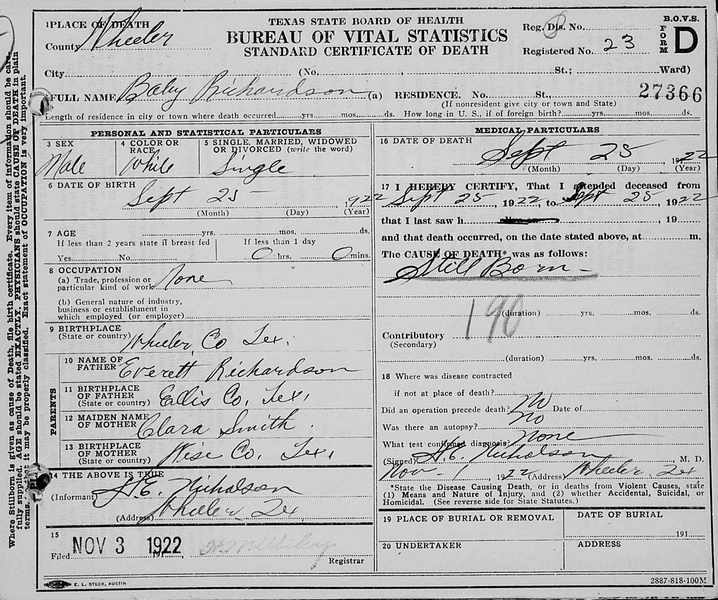 TEXAS STATE BOARD OF HEALTH
BUREAU OF VITAL STATISTICS
STANDARD CERTIFICATE OF DEATH
1 PLACE OF DEATH
County Wheeler
Reg. Dis. No.
Registered No. 23
B.O.V.S.
FORM D
City (No. St.; Ward)
27366
FULL NAME Baby Richardson (a) RESIDENCE. No. St.,
(If nonresident give city or town and State)
Length of residence in city or town where death occurred, yrs. mos. ds. How long in U. S., if of foreign birth? yrs. mos. ds.
PERSONAL AND STATISTICAL PARTICULARS
3 SEX
Male
4 COLOR OR RACE
White
5 SINGLE, MARRIED, WIDOWED OR DIVORCED (write the word)
Single
6 DATE OF BIRTH
Sept 25 1922
(Month) (Day) (Year)
7 AGE yrs. mos. ds.
If less than 2 years state if breast fed
Yes. No.
If less than 1 day
0 hrs. 0 mins.
8 OCCUPATION
(a) Trade, profession or particular kind of work None
(b) General nature of industry, business or establishment in which employed (or employer)
9 BIRTHPLACE
(State or country) Wheeler Co Tex.
PARENTS
10 NAME OF FATHER Everett Richardson
11 BIRTHPLACE OF FATHER
(State or country) Ellis Co, Tex,
12 MAIDEN NAME OF MOTHER Clara Smith
13 BIRTHPLACE OF MOTHER
(State or country) Wise Co, Tex,
14 THE ABOVE IS TRUE
(Informant) H.E. Nicholson
(Address) Wheeler Tex
15
Filed NOV 3 1922
Registrar
MEDICAL PARTICULARS
16 DATE OF DEATH
Sept 25 1922
(Month) (Day) (Year)
17 I HEREBY CERTIFY, That I attended deceased from
Sept 25, 1922 to Sept 25 1922
that I last saw h 19
and that death occurred, on the date stated above, at m.
The CAUSE OF DEATH* was as follows:
Still Born
190
(duration) yrs. mos. ds.
Contributory
(Secondary)
(duration) yrs. mos. ds.
18 Where was disease contracted
if not at place of death?
Did an operation precede death? No Date of
Was there an autopsy? No
What test confirmed diagnosis? None
(Signed) H.E. Nicholson M. D.
Nov 1922 (Address) Wheeler Tex
*State the Disease Causing Death, or in deaths from Violent Causes, state (1) Means and Nature of Injury, and (2) whether Accidental, Suicidal, or Homicidal. (See reverse side for State Statutes.)
19 PLACE OF BURIAL OR REMOVAL
DATE OF BURIAL
191
20 UNDERTAKER
ADDRESS
E. L. STECK, AUSTIN
2887-818-100M
Where Stillborn is given as cause of Death, file birth certificate. Every item of information should be care-
fully supplied. AGE should be stated EXACTLY. PHYSICIANS should state CAUSE OF DEATH in plain
terms, so that it may be properly classified. Exact statement of OCCUPATION is very important.